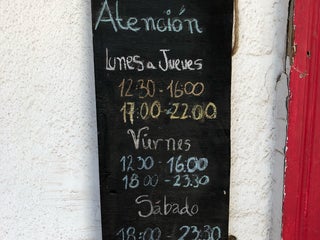 Atención
Lunes a Jueves
12:30 - 16:00
17:00 - 22:00
Viernes
12:30 - 16:00
18:00 - 23:30
Sábado
18:00 - 23:30